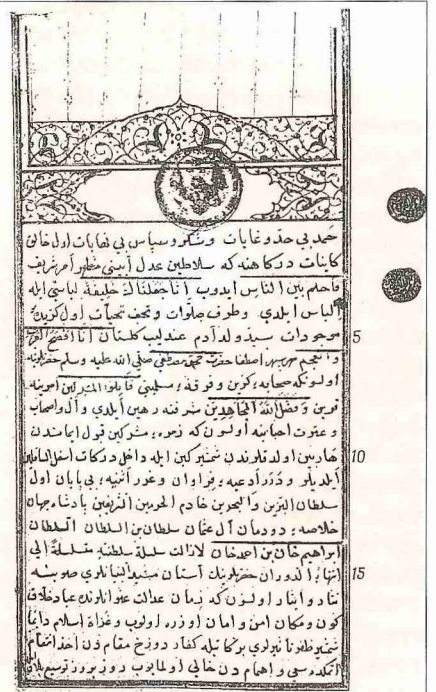 حمد بی حد و غایات و شکر و سپاس بی نهایات اول خالق
کاینات درکاهنه که سلاطین عدل آیینی مظهر امر شریف
فاحکم بین الناس ایدوب انا جعلناک خلیفة لباسی ایله
الباس ایلدی و طرف صلوات و تحف تحیات اول کزیده
موجودات سید ولد آدم عندلیب کلستان انا افصح العرب 5
والعجم اصطفا حضرت محمد مصطفی صلی الله علیه وسلم حضرتلرینه
اولسونکه صحابه کزین
قرین و فضل الله المجاهدین شرفنه رهین ایلدی و آل و اصحاب
و عترت احبابنه اولسون که زمره مشرکین قبول ایماندن
هاربین اولدقلرندن شمشیر کین ایله داخل درکات اسفل السافلین 10
ایلدیلر و درر ادعیه فراوان و غرر اثنیه بی پایان اول
سلطان البرین والبحرین خادم الحرمین الشریفین پادشاه جهان
خلاصه دودمان آل عثمان سلطان بن السلطان السلطان
ابراهیم خان بن احمد خان لازالت سلسلة سلطنته الی
انتهاء الدوران حضرتلرینک آستان مشید البنیانلری صوبنه 15
نثار و ایثار اولنور که زمان عدالت عنوانلرنده عباد خلاق
کون و مکان امن و امان اوزره اولوب و غزاة اسلام دائما
شمشیر ظفر ایله کفار دوزخ مقام دن اخذ انتقام
ایتمکده سعی و اهتمام دن خالی اولمایوب روز بروز توسیع بلاد